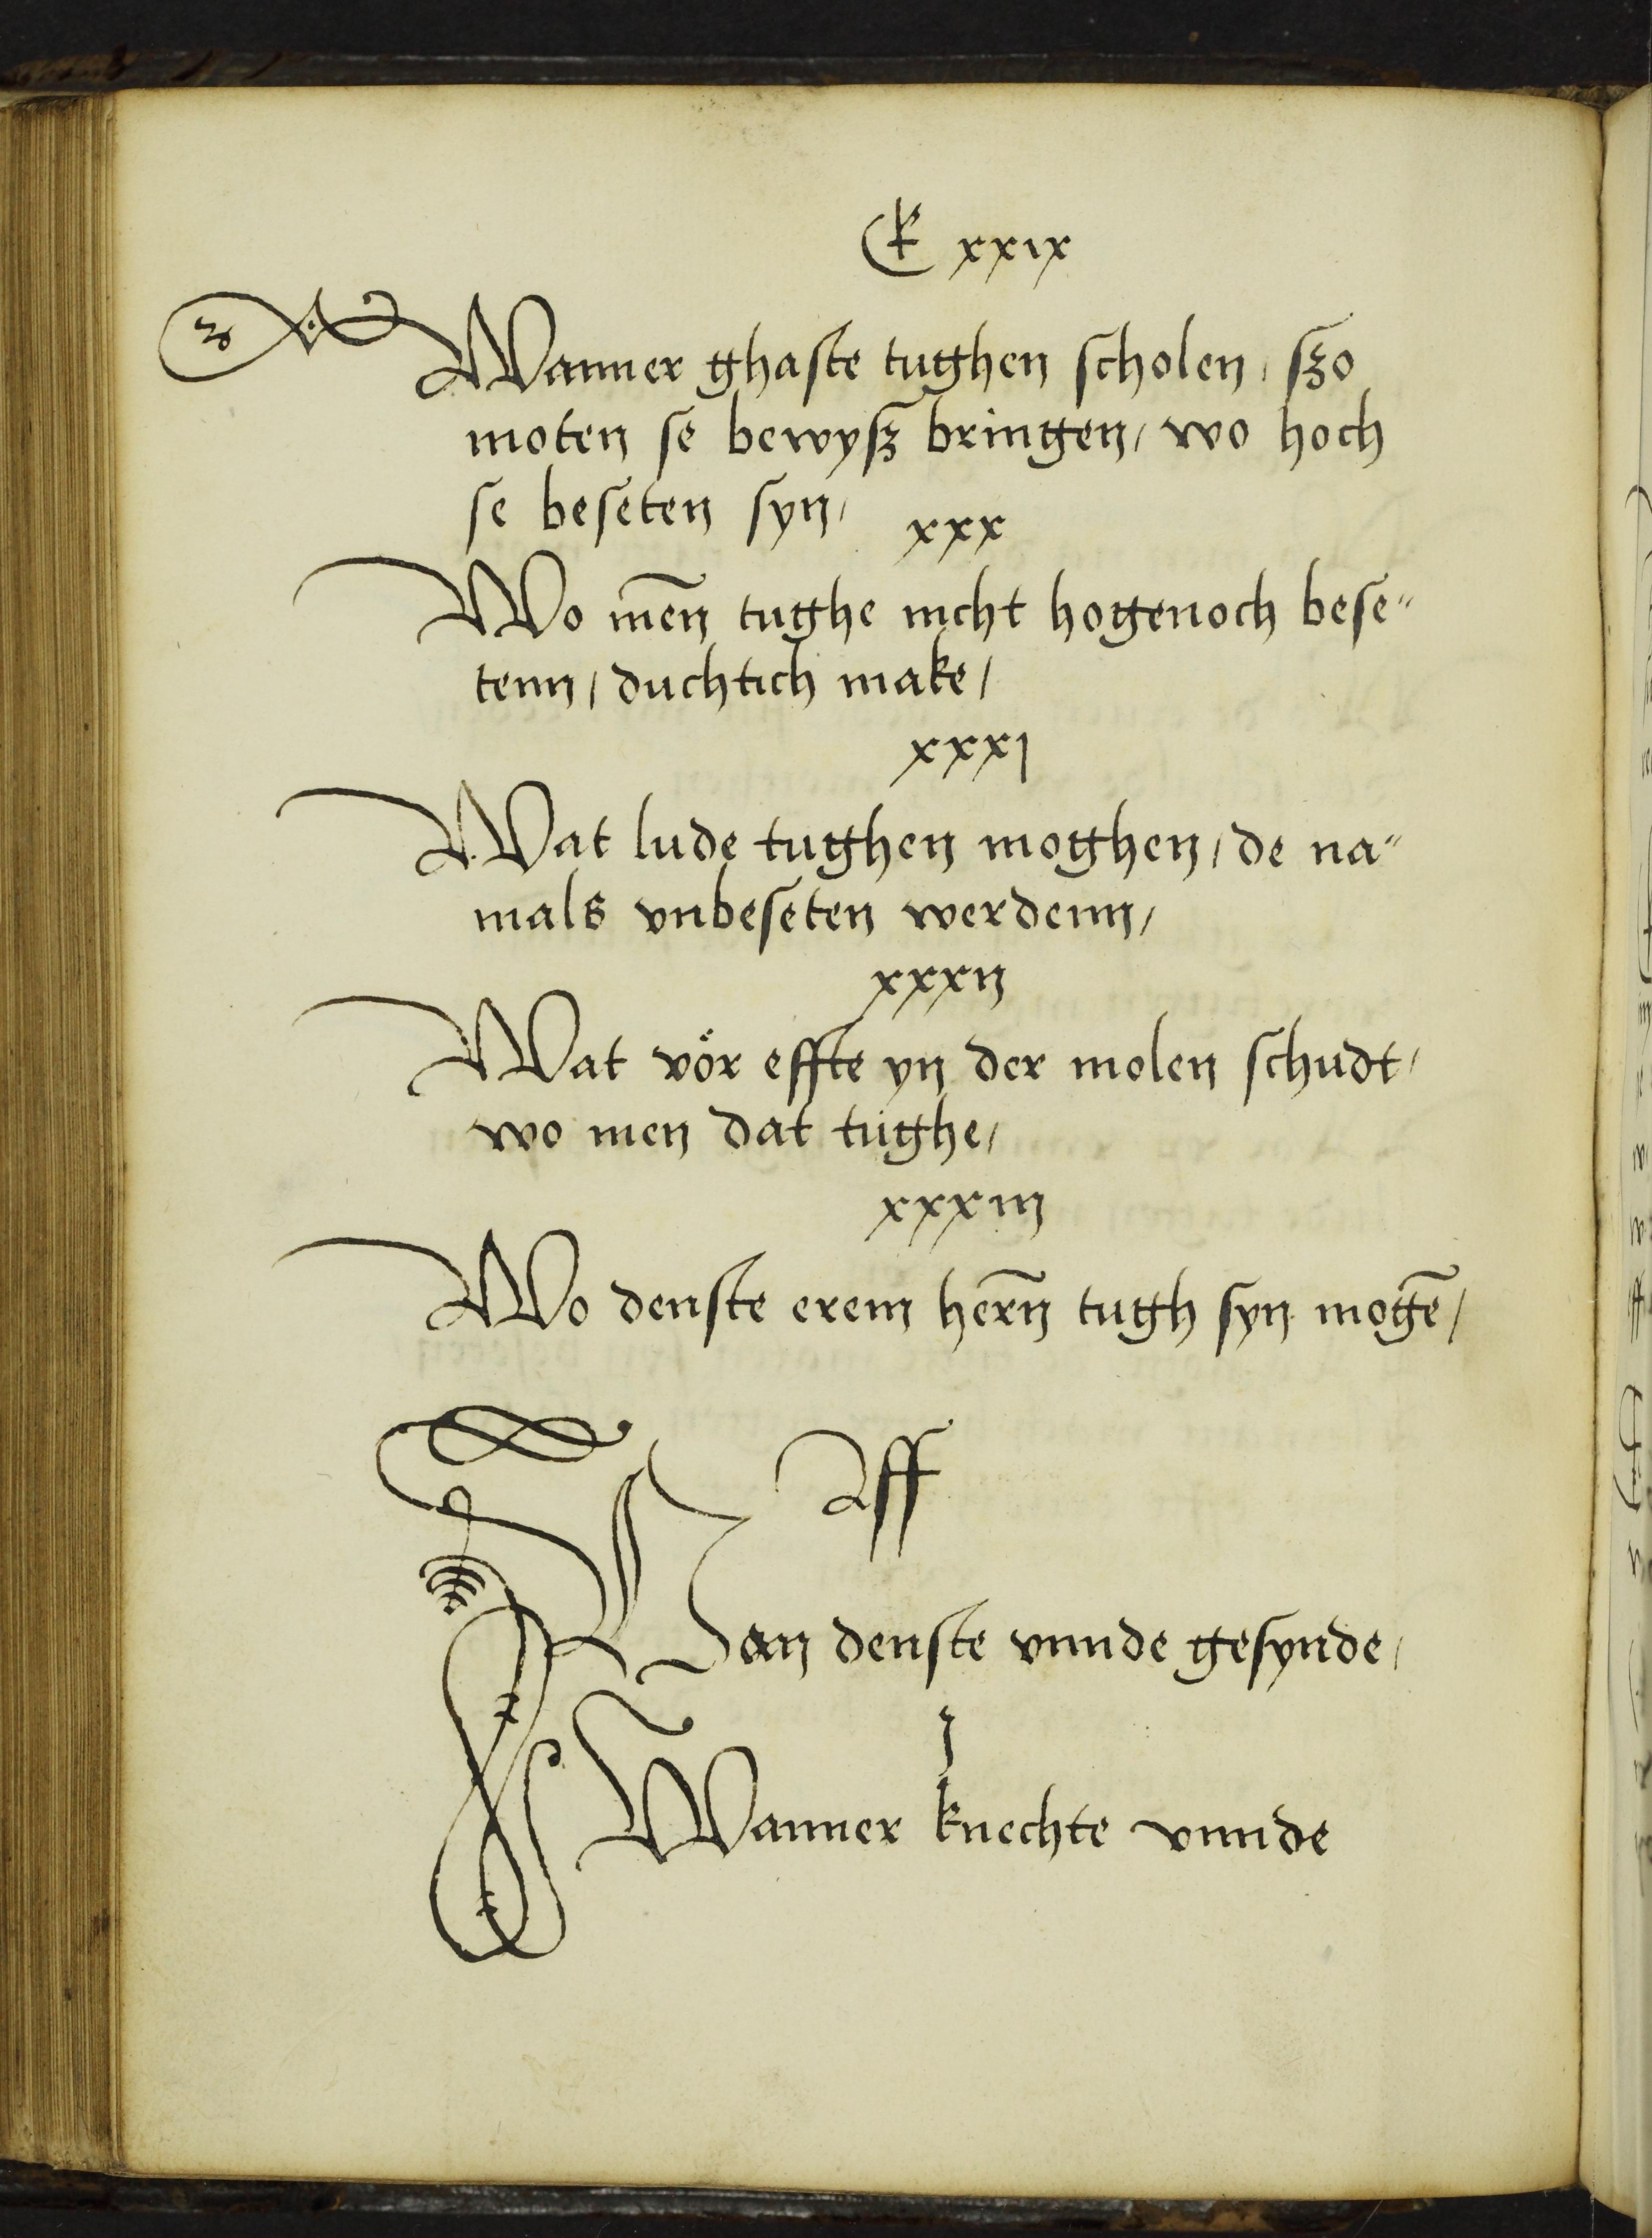 E xxix
Wanner ghaste tughen scholen, szo
moten se bewysz bringen, wo hoch
se beseten syn,
xxx
Wo mēn tughe nicht hogenoch bese-
tenn, duchtich make,
xxxj
Wat lude tughen moghen, de na-
mals vnbeseten werdenn,
xxxij
Wat vör effte yn der molen schudt,
wo men dat tughe,
xxxiij
Wo denste erem her̄n tugh syn mogē,
Aff
Van denste vnnde gesynde,
j
Wanner knechte vnnde